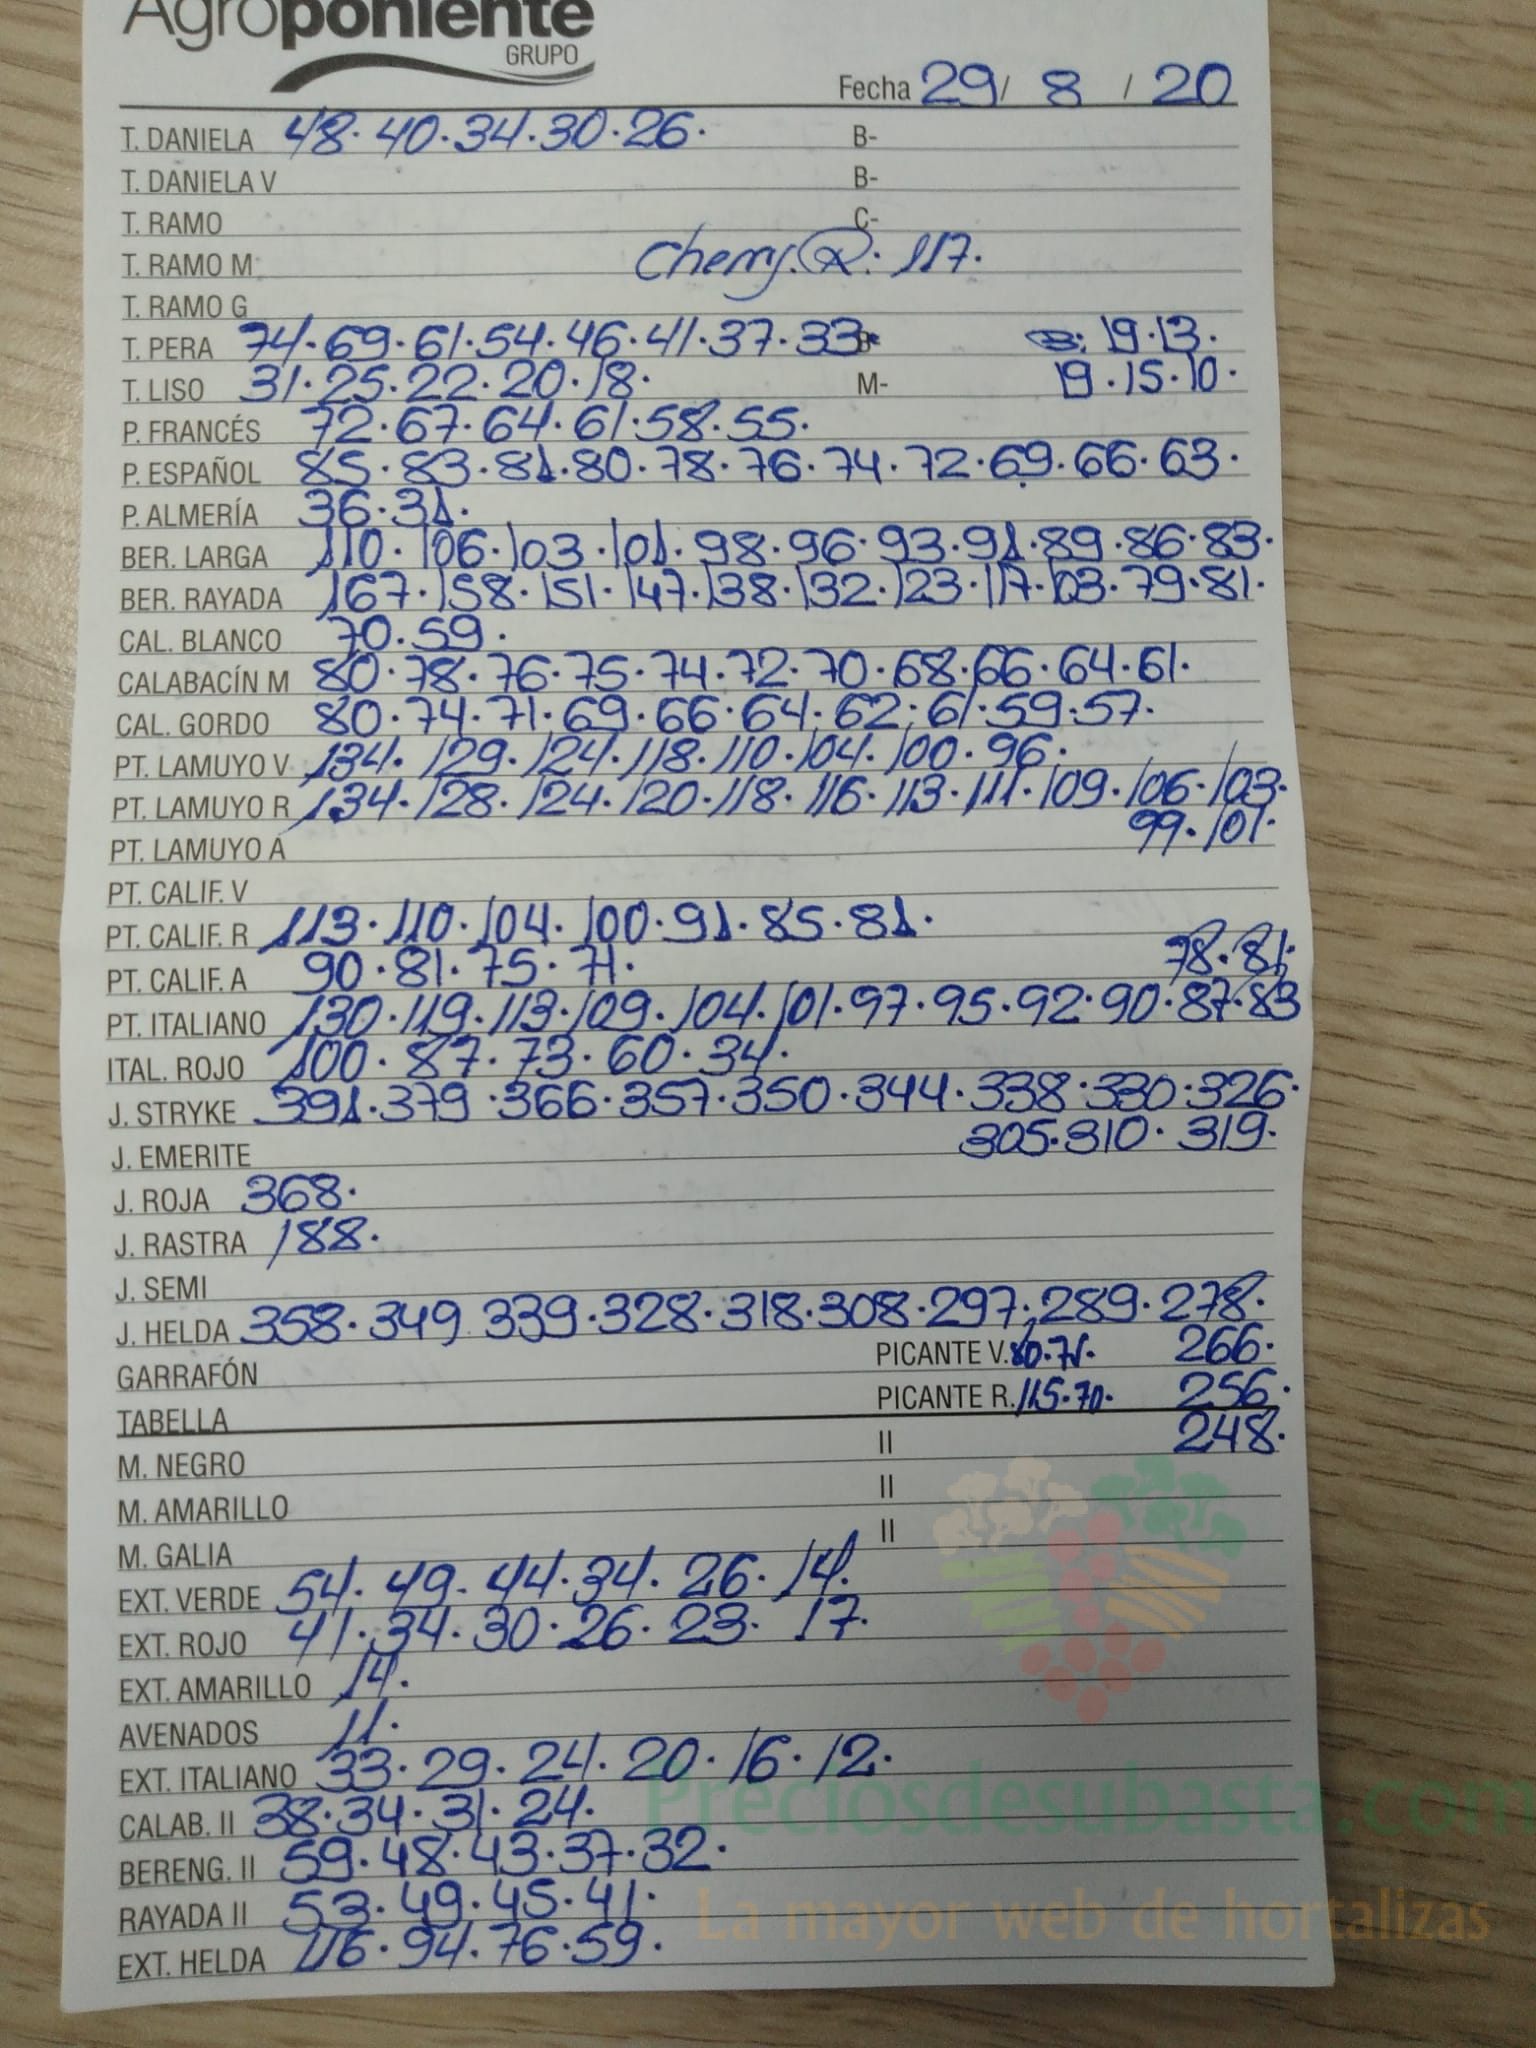 Agroponiente
GRUPO
Fecha 29/ 8 / 20
T. DANIELA 48·40·34·30·26· B-
T. DANIELA V B-
T. RAMO C-
T. RAMO M Cherry. R: 117.
T. RAMO G
T. PERA 74·69·61·54·46·41·37·33 B: 19·13·
T. LISO 31·25·22·20·18· M- 19·15·10·
P. FRANCÉS 72·67·64·61·58·55·
P. ESPAÑOL 85·83·81·80·78·76·74·72·69·66·63·
P. ALMERÍA 36·31·
BER. LARGA 110·106·103·101·98·96·93·91·89·86·83·
BER. RAYADA 167·158·151·147·138·132·123·117·103·79·81·
CAL. BLANCO 70·59·
CALABACÍN M 80·78·76·75·74·72·70·68·66·64·61·
CAL. GORDO 80·74·71·69·66·64·62·61·59·57·
PT. LAMUYO V 134·129·124·118·110·104·100·96·
PT. LAMUYO R 134·128·124·120·118·116·113·111·109·106·103·
PT. LAMUYO A 99·101·
PT. CALIF. V
PT. CALIF. R 113·110·104·100·91·85·81·
PT. CALIF. A 90·81·75·71· 78·81·
PT. ITALIANO 130·119·113·109·104·101·97·95·92·90·87·83
ITAL. ROJO 100·87·73·60·34·
J. STRYKE 391·379·366·357·350·344·338·330·326·
J. EMERITE 305·310·319·
J. ROJA 368·
J. RASTRA 188·
J. SEMI
J. HELDA 358·349 339·328·318·308·297·289·278·
GARRAFÓN PICANTE V. 80·71· 266·
TABELLA PICANTE R. 115·70· 256·
M. NEGRO II 248·
M. AMARILLO II
M. GALIA II
EXT. VERDE 54·49·44·34·26·14·
EXT. ROJO 41·34·30·26·23·17·
EXT. AMARILLO 14·
AVENADOS 11·
EXT. ITALIANO 33·29·24·20·16·12·
CALAB. II 38·34·31·24·
Preciosdesubasta.com
BERENG. II 59·48·43·37·32·
RAYADA II 53·49·45·41·
La mayor web de hortalizas
EXT. HELDA 116·94·76·59·